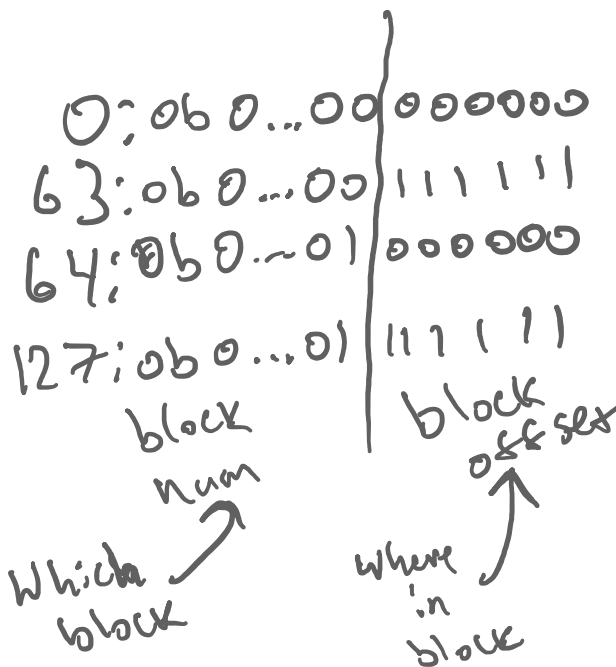 0: 0b 0...00 000000
63: 0b 0...00 111111
64: 0b 0...01 000000
127: 0b 0...01 111111
block num
block offset
which block
where in block